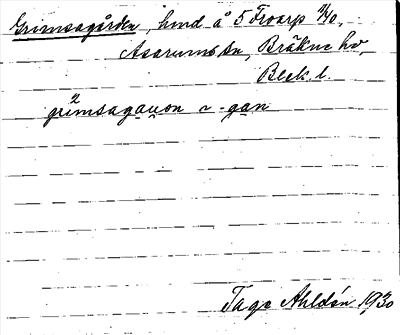 Grimsagården, hmd å 5 Froarp 2/10,
Asarums sn, Bräkne hd,
Blek. l.
grímsagau̯on ~ -gan
Tage Ahldén 1930